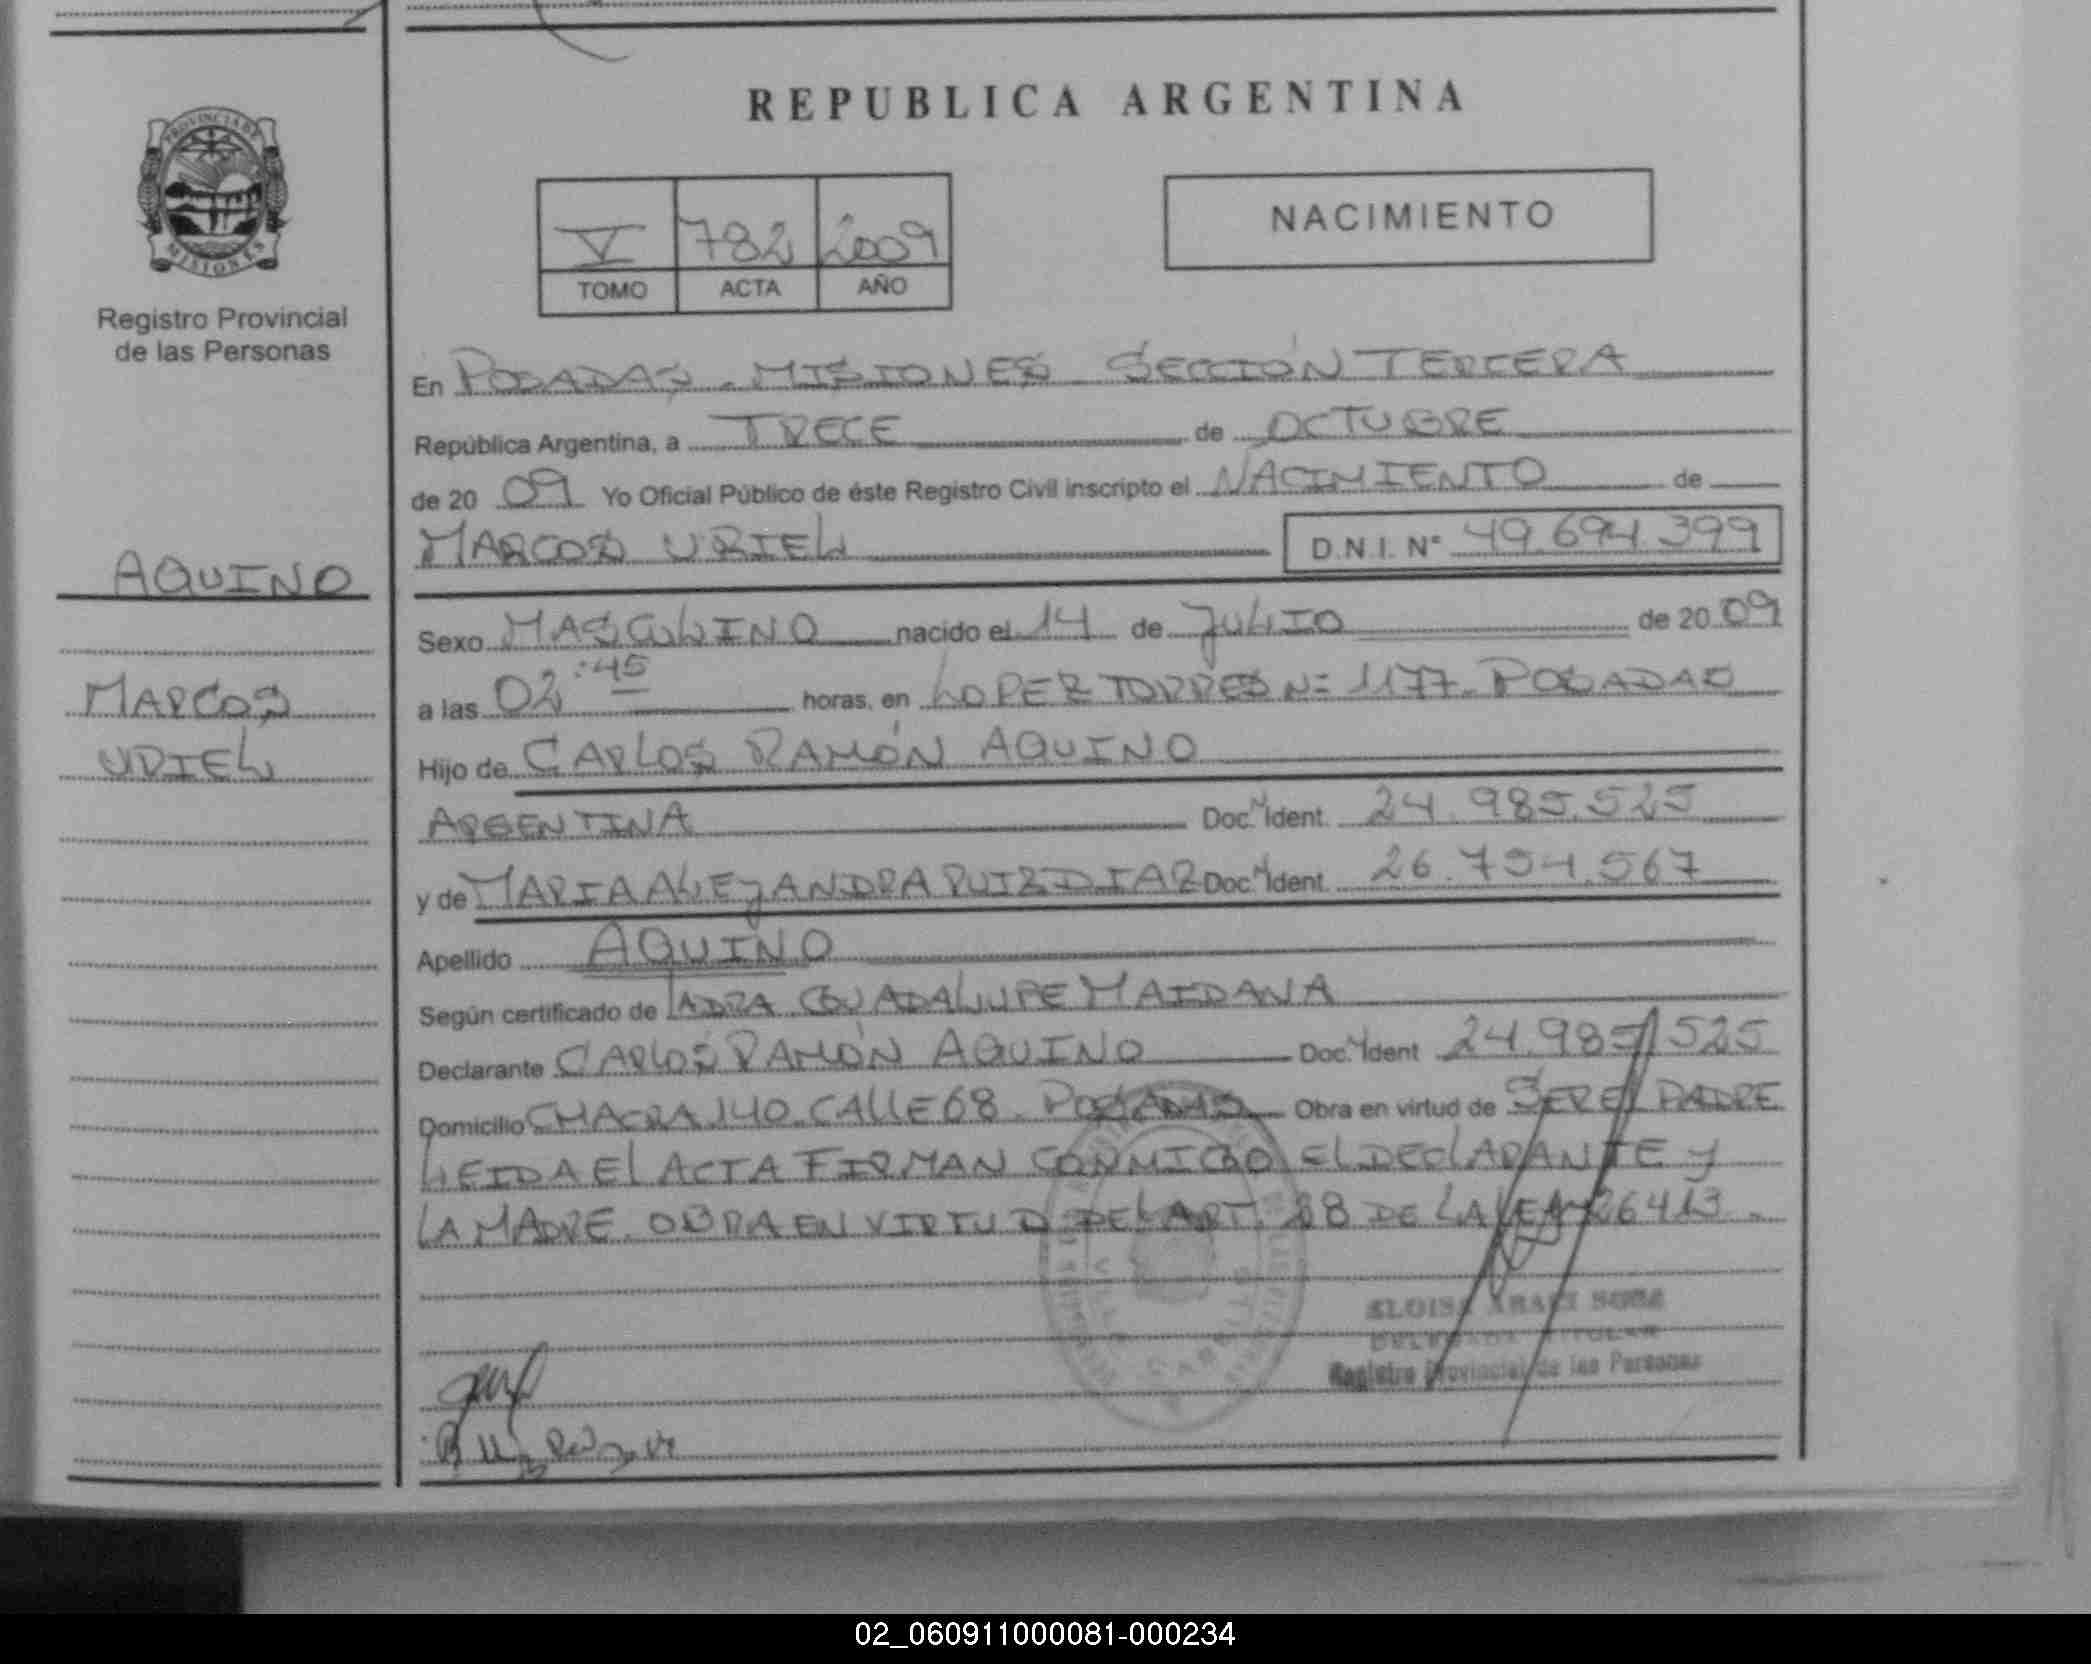 REPUBLICA ARGENTINA
PROVINCIA DE
MISIONES
Registro Provincial
de las Personas
V 782 2009
TOMO ACTA AÑO
NACIMIENTO
En POSADAS - MISIONES SECCIÓN TERCERA
República Argentina, a TRECE de OCTUBRE
de 20 09 Yo Oficial Público de éste Registro Civil inscripto el NACIMIENTO de
MARCOS URIEL D.N.I. N° 49.694.399
AQUINO
MARCOS
URIEL
Sexo MASCULINO nacido el 14 de JULIO de 20 09
a las 02:45 horas, en LOPEZ TORRES N= 1177. POSADAS
Hijo de CARLOS RAMÓN AQUINO
ARGENTINA Doc. N Ident. 24.985.525
y de MARIA ALEJANDRA RUIZ DIAZ Doc. N Ident. 26.754.567
Apellido AQUINO
Según certificado de GUADALUPE MAIDANA
Declarante CARLOS RAMÓN AQUINO Doc. N Ident 24.985.525
Domicilio CHACRA 140. CALLE 68. POSADAS Obra en virtud de SER EL PADRE
LEIDA EL ACTA FIRMAN CONMIGO EL DECLARANTE y
LA MADRE. OBRA EN VIRTUD DEL ART. 28 DE LA LEY 26413.
DELEGADA TITULAR
Registro Provincial de las Personas
02_060911000081-000234